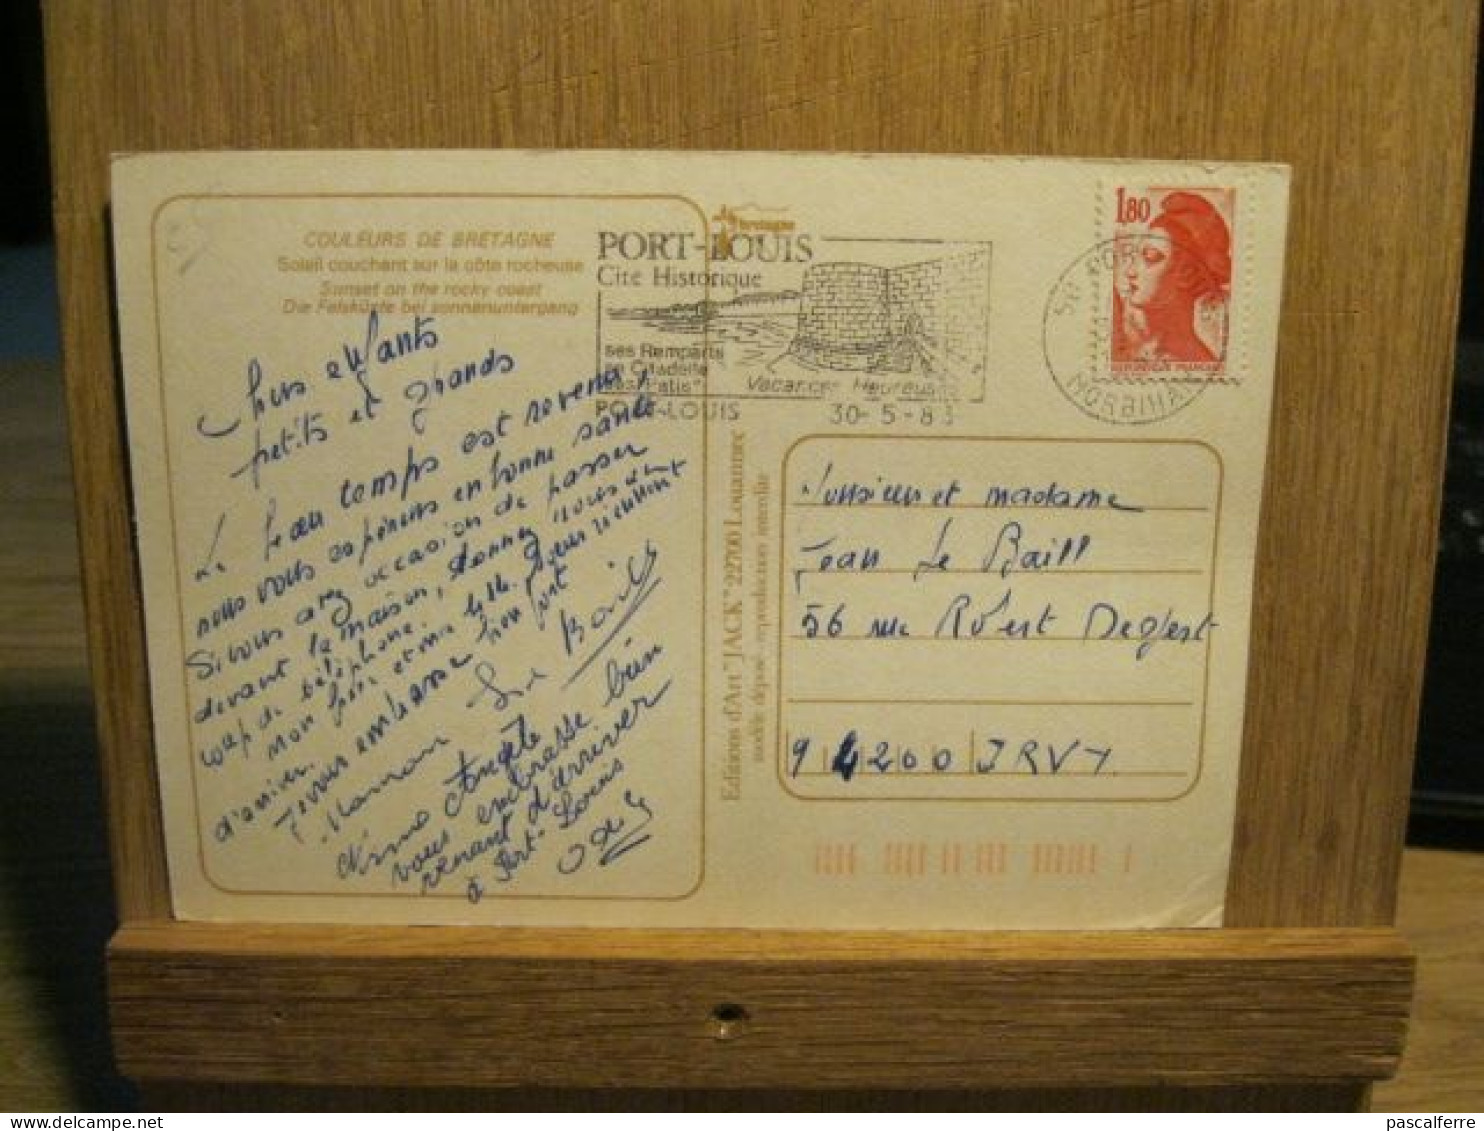 COULEURS DE BRETAGNE
Soleil couchant sur la côte rocheuse
Sunset on the rocky coast
Die Felsküste bei sonnenuntergang
bretagne
PORT-LOUIS
Cité Historique
ses Remparts
sa Citadelle
ses "Patis"
Vacances Heureuses
PORT-LOUIS 30-5-83
1,80
REPUBLIQUE FRANÇAISE
MORBIHAN
Chers enfants
petits et grands
Le beau temps est revenu,
nous vous espérons en bonne santé
Si vous avez occasion de passer
devant la maison, donnez nous un
coup de téléphone.
Mon frère et ma
d'arriver.
vous embrasse bien fort
Maman
Angèle
vous embrasse bien
venant d'arriver
à Port-Louis
Editions d'Art "JACK" 22700 Louannec
modèle déposé - reproduction interdite
Monsieur et madame
Jean Le Baill
56 rue Robert Degert
94200 IVRY
pascalferre